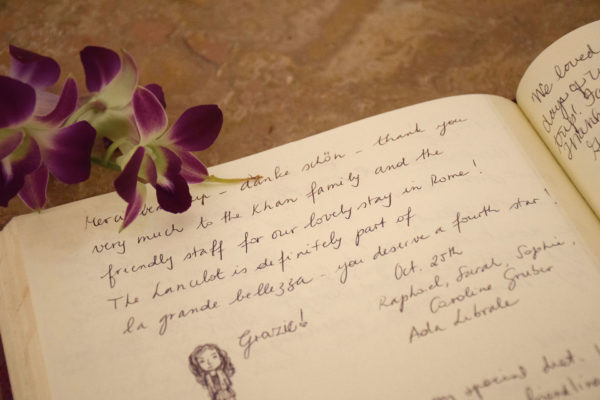 danke schön - thank you
very much to the Khan family and the
friendly staff for our lovely stay in Rome!
The Lancelot is definitely part of
la grande bellezza - you deserve a fourth star!
Oct. 25th
Raphael, Sarah, Sophie,
Caroline Gruber
Ada Librale
Grazie!
special diet.
We loved
days
trip!